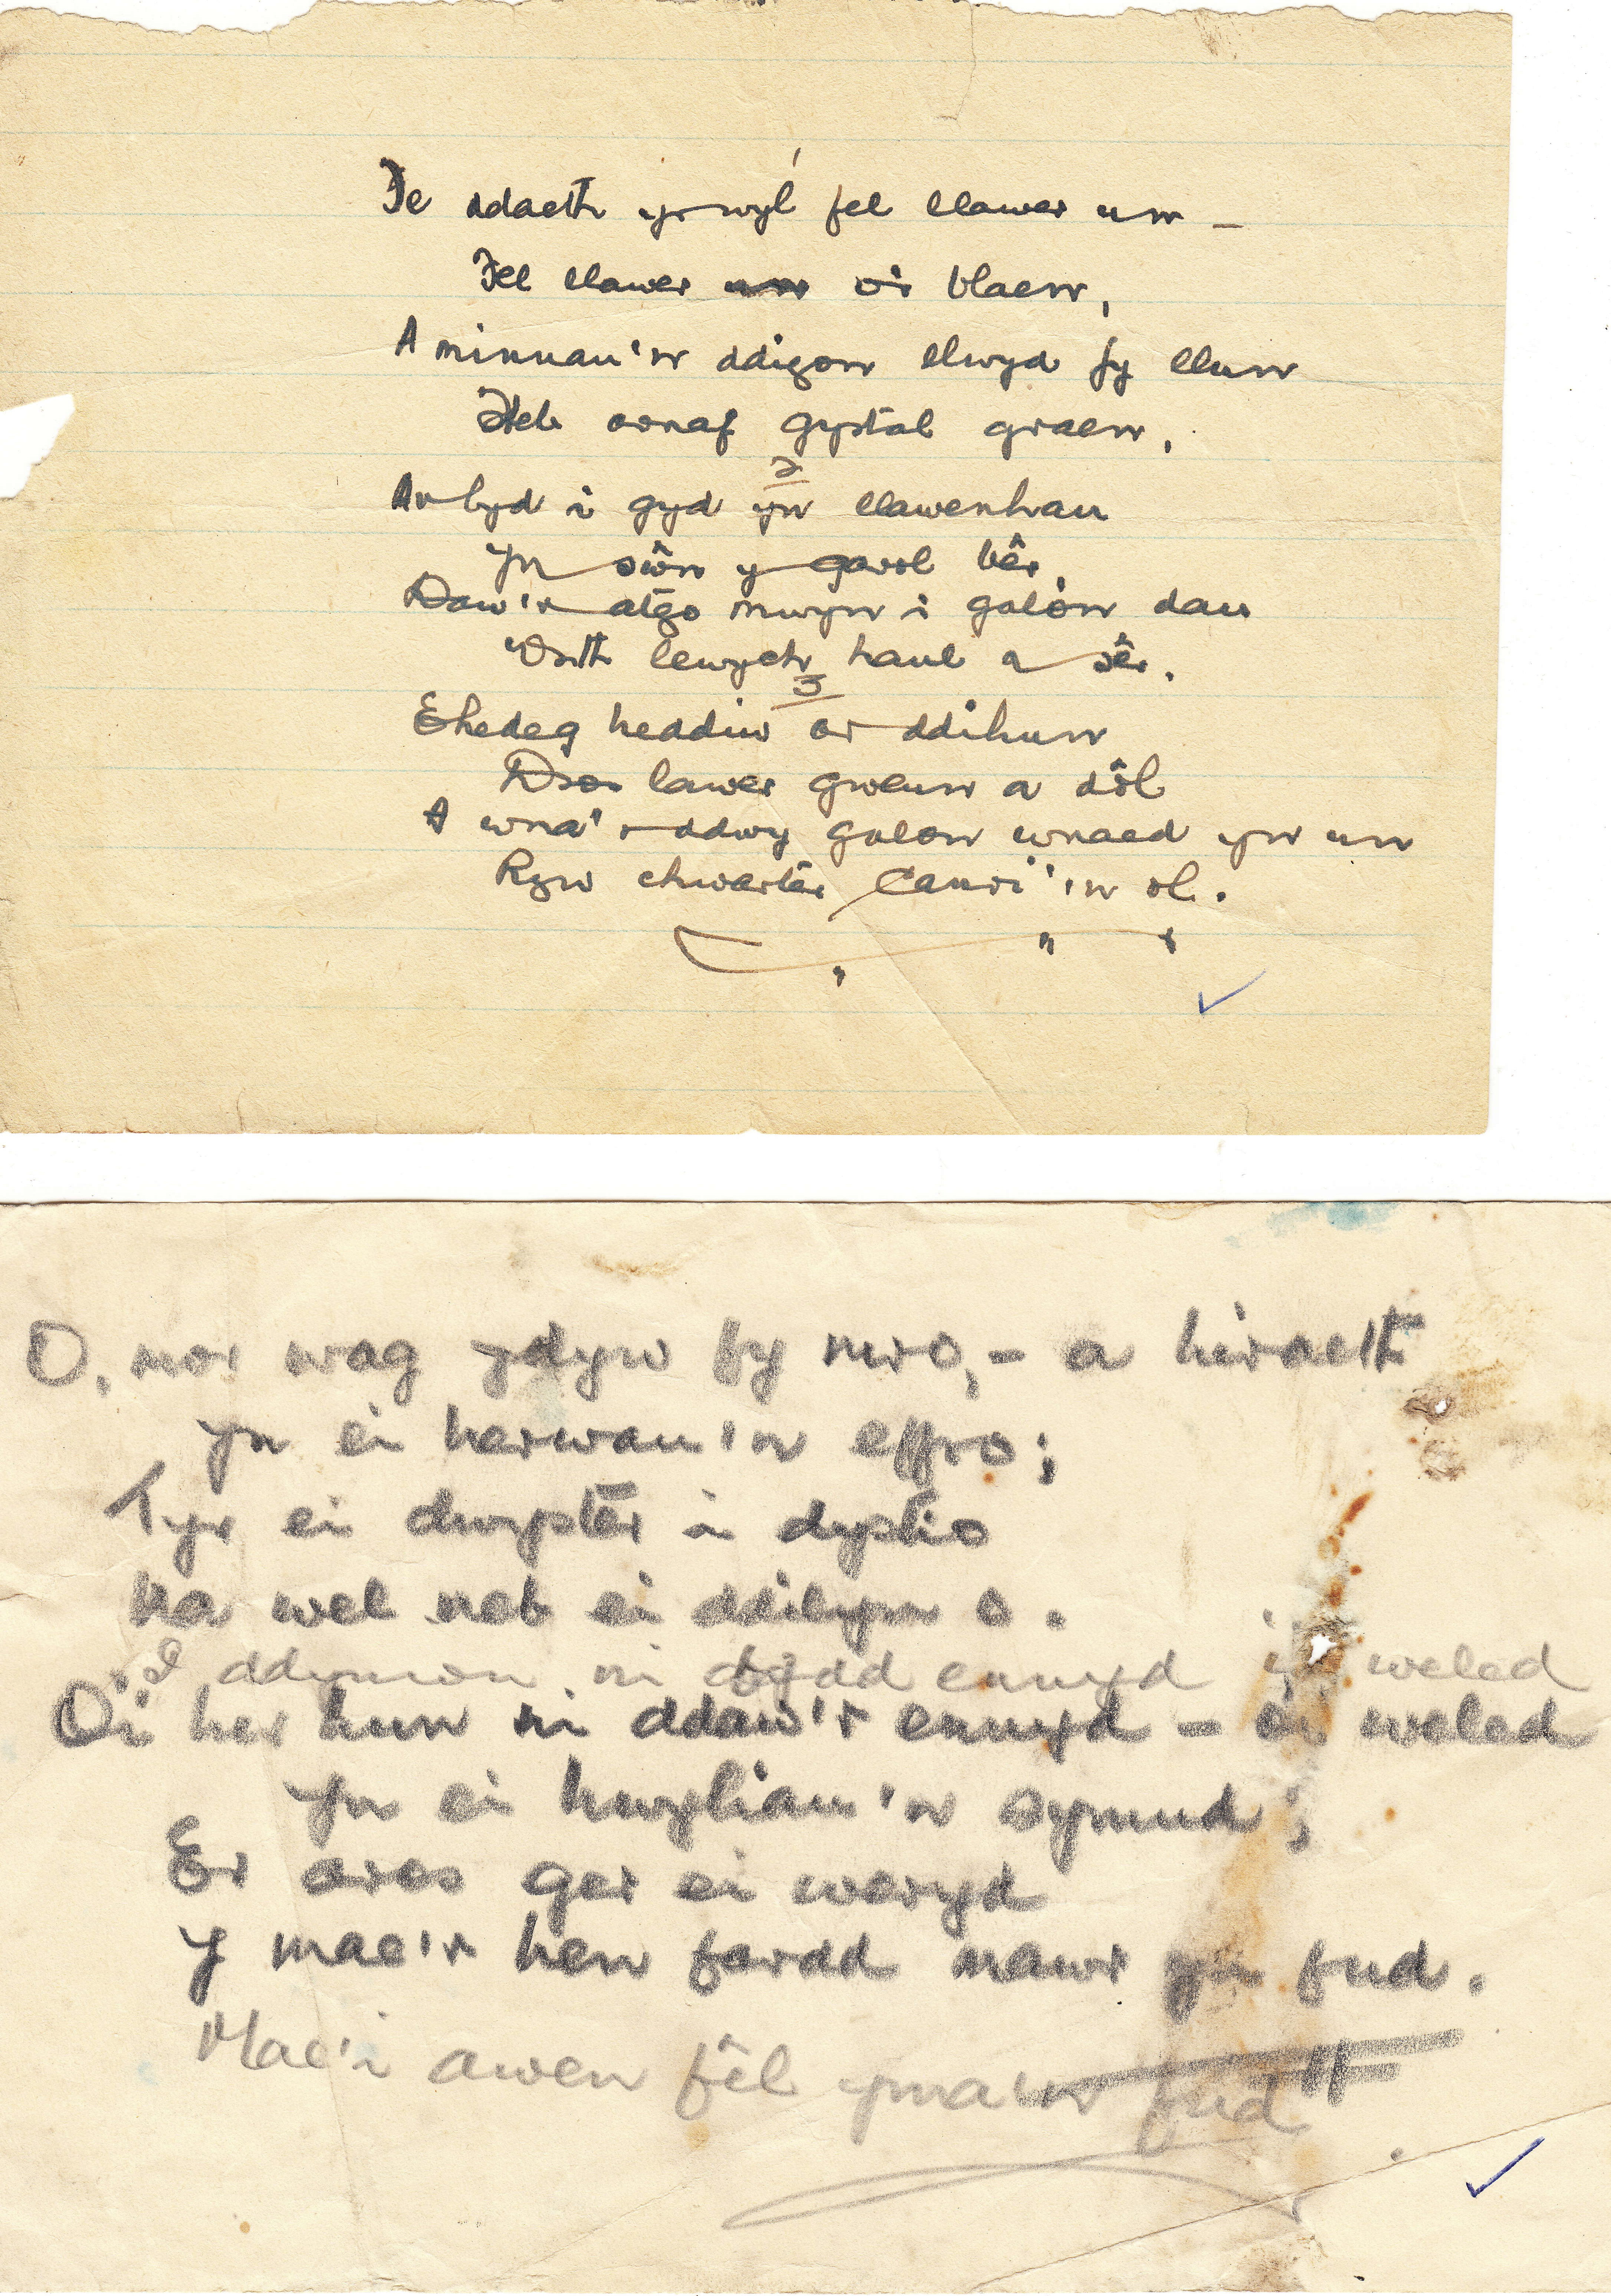 Fe ddaeth yr wyl fel llawer un –
Fel llawer un o'i blaen,
A minnau'n ddigon llwyd fy llun
Heb arnaf gystal graen.
2
A'r byd i gyd yn llawenhau
Yn sŵn y garol bêr,
Daw'r atgo mwyn i galon dau
Wrth lewych haul a sêr.
3
Ehedeg heddiw ar ddihun
Dros lawer gweun a dôl
A wna'r ddwy galon wnaed yn un
Ryw chwarter Canri'n ol.
" "
O, mor wag ydyw fy mro, – a hiraeth
Yn ei herwau'n effro;
Tyr ei dwyster i dystio
Na wel neb ei ddilyn o.
I ddynion ni bydd ennyd i'w weled
O'i her hun ni ddaw'r ennyd – ei weled
Yn ei hwyliau'n symud;
Er aros ger ei weryd
Y mae'r hen fardd mawr yn fud.
Mae'i awen fel yma'n fud